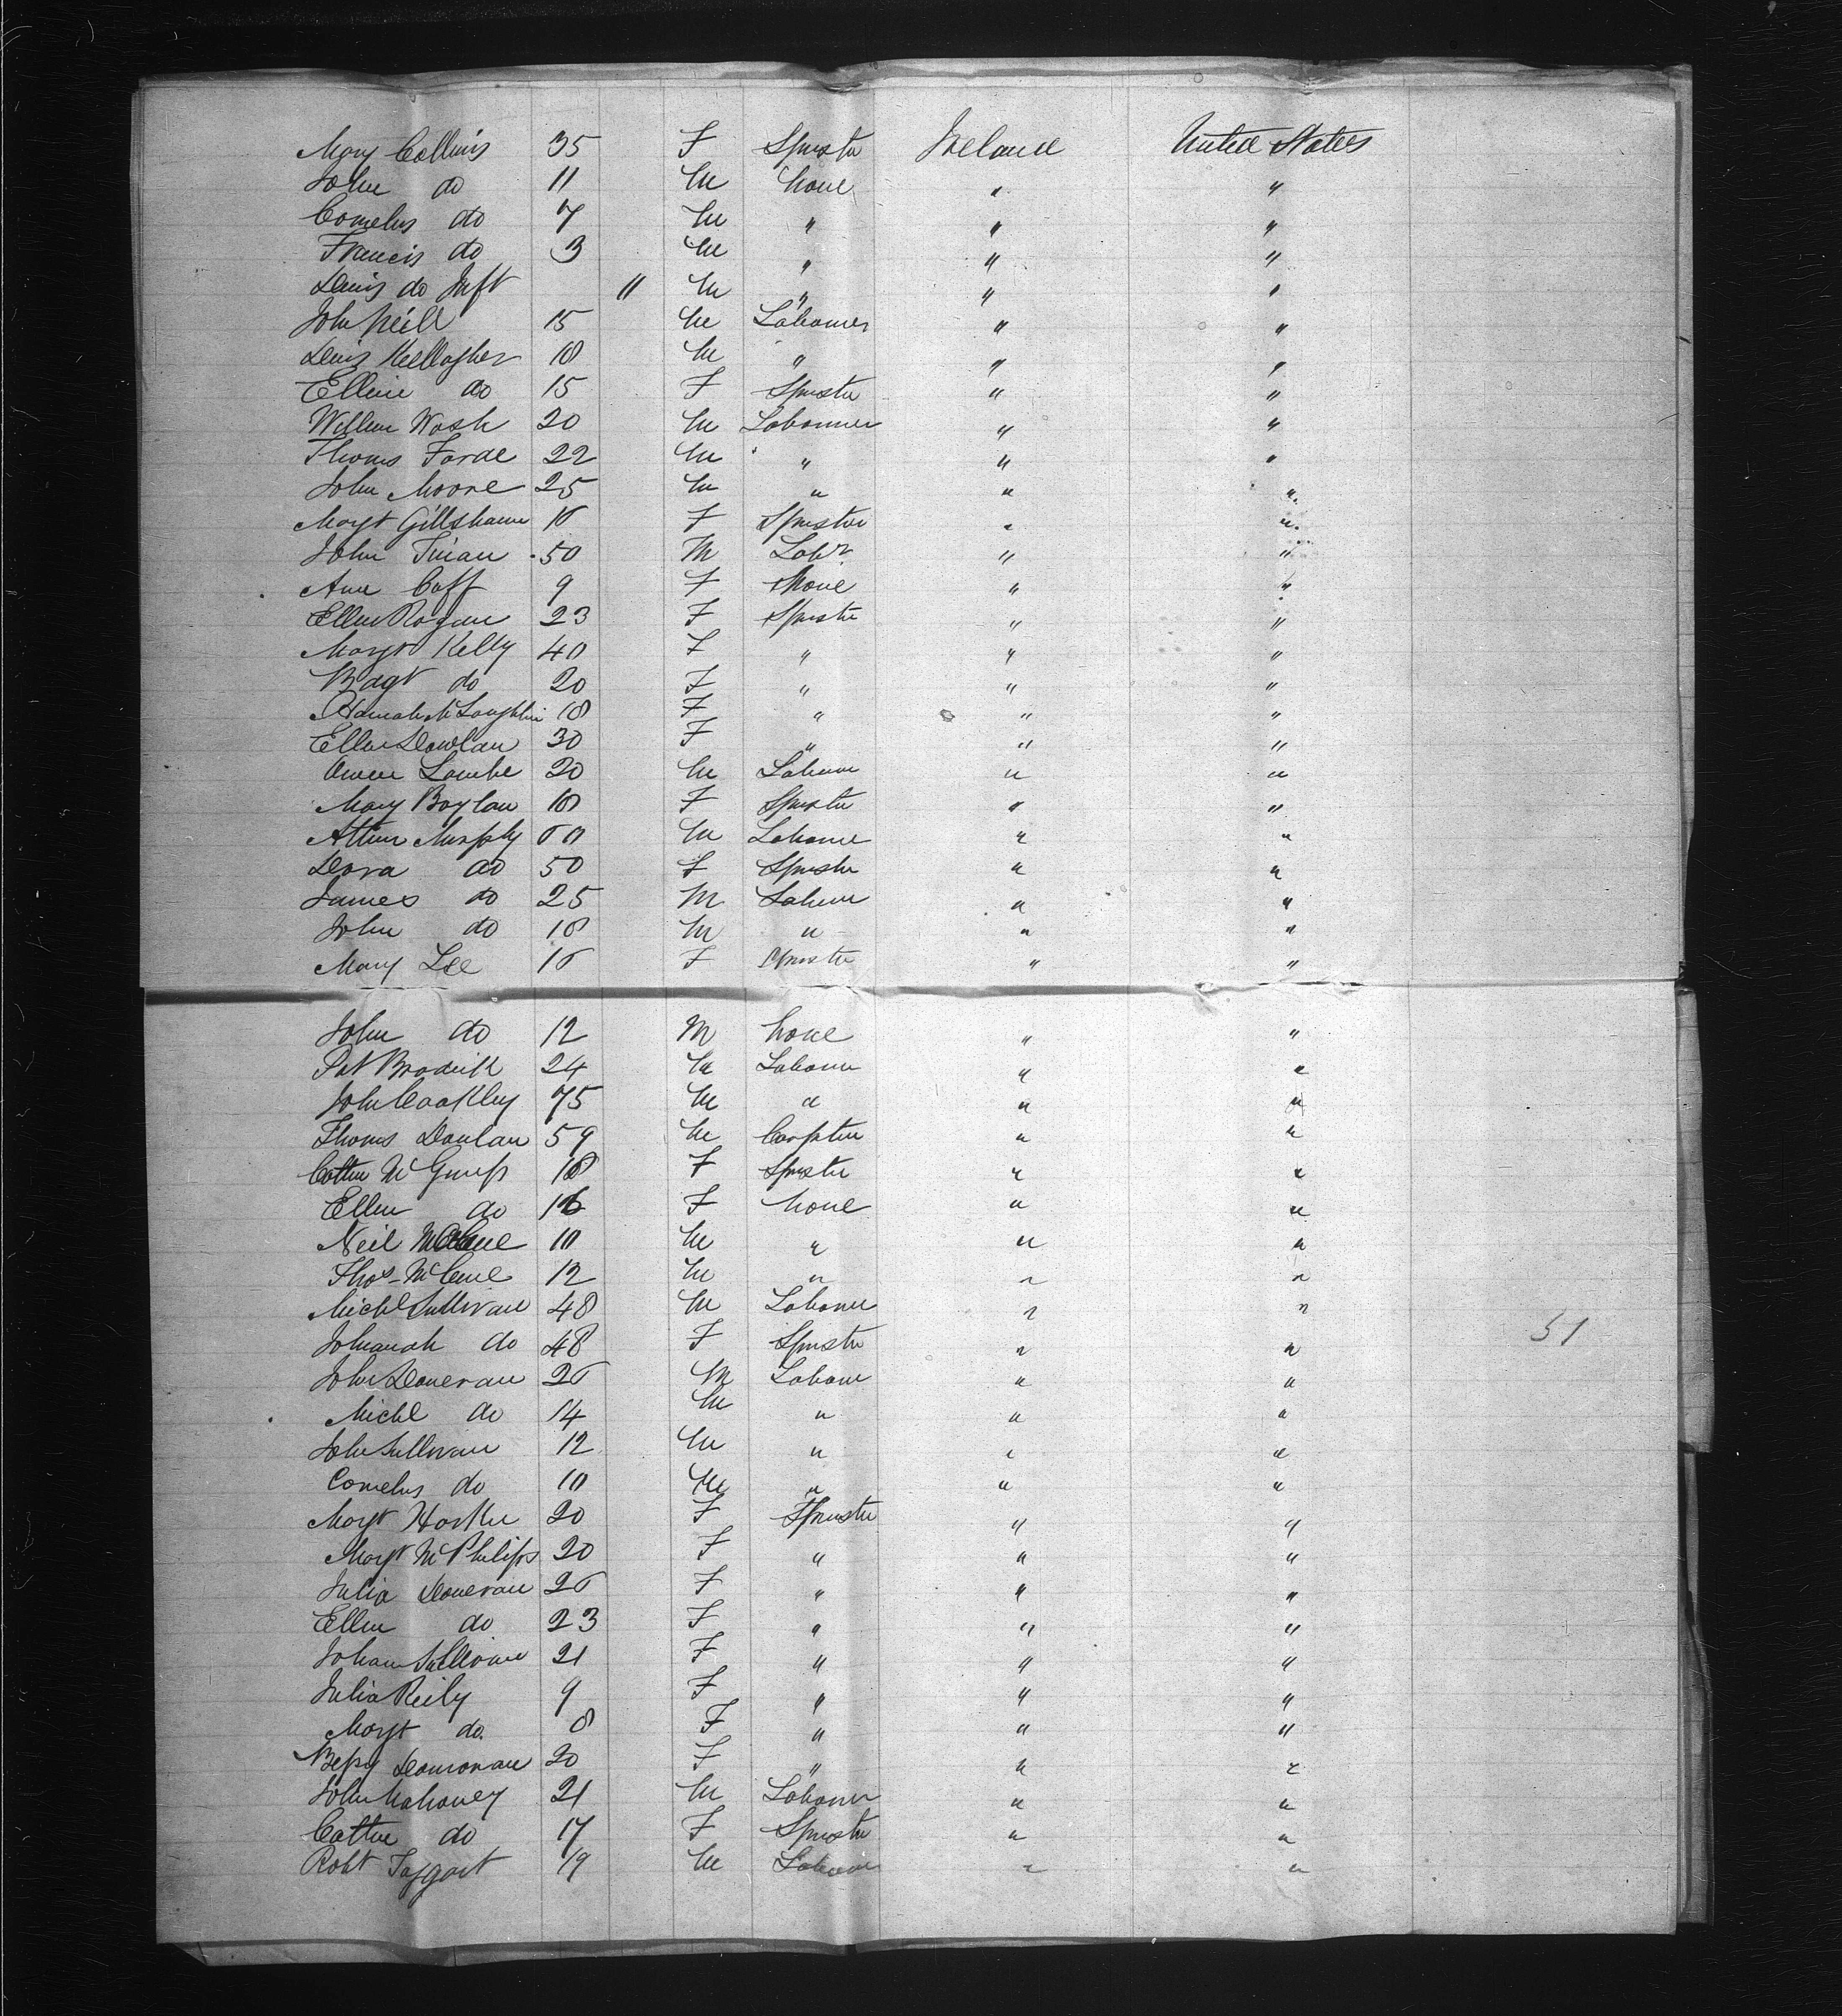 Mary Collins 35 F Spinster Ireland United States
John do 11 M None " "
Cornelius do 7 M " " "
Francis do 3 M " " "
Denis do Inft 11 M " " "
John Neill 15 M Labourer " "
Denis Kellagher 18 M " " "
Ellen do 15 F Spinster " "
William Wash 20 M Labourer " "
Thomas Forde 22 M " " "
John Moore 25 M " " "
Margt 16 F Spinster " "
John Tinan 50 M Labr " "
Ann Caff 9 F None " "
Ellen Rogan 23 F Spinster " "
Margt Kelly 40 F " " "
do 20 F " " "
Hannah McLoughlin 18 F " " "
Ellen Dowlan 30 F " " "
Owen Lambe 20 M Labourer " "
Mary Boylan 18 F Spinster " "
Arthur Murphy 60 M Labourer " "
Dora do 50 F Spinster " "
James do 25 M Labourer " "
John do 18 M " " "
Mary Lee 16 F Spinster " "
John do 12 M None " "
Pat Brodrick 24 M Labourer " "
John Coakley 75 M " " "
Thomas Donlan 59 M Carpenter " "
Cathe 18 F Spinster " "
Ellen do 16 F None " "
Neil 10 M " " "
Thos McCue 12 M " " "
Michl Sullivan 48 M Labourer " "
Johanah do 48 F Spinster " "
51
John Donevan 26 M Labourer " "
Michl do 14 M " " "
John Sullivan 12 M " " "
Cornelius do 10 M " " "
Margt 20 F Spinster " "
Margt McPhilips 20 F " " "
Julia Donevan 26 F " " "
Ellen do 23 F " " "
Johan Sullivan 21 F " " "
Julia Reily 9 F " " "
Margt do 8 F " " "
Bessy Donnovan 20 F " " "
John Mahoney 21 M Labourer " "
Cathe do 17 F Spinster " "
Robt Taggart 19 M Labourer " "